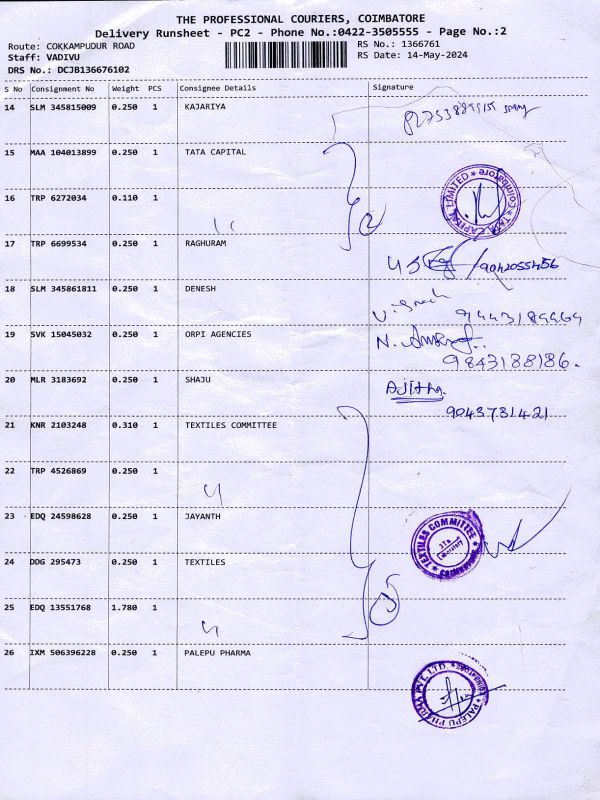 THE PROFESSIONAL COURIERS, COIMBATORE
Delivery Runsheet - PC2 - Phone No.:0422-3505555 - Page No.:2
Route: COKKAMPUDUR ROAD
Staff: VADIVU
DRS No.: DCJB136676102
RS No.: 1366761
RS Date: 14-May-2024
S No Consignment No Weight PCS Consignee Details Signature
14 SLM 345815009 0.250 1 KAJARIYA
15 MAA 104013899 0.250 1 TATA CAPITAL
TATA CAPITAL LIMITED * Coimbatore *
16 TRP 6272034 0.110 1
2
17 TRP 6699534 0.250 1 RAGHURAM
9042055456
18 SLM 345861811 0.250 1 DENESH
19 SVK 15045032 0.250 1 ORPI AGENCIES
9843188186.
20 MLR 3183692 0.250 1 SHAJU
Ajitha.
9043731421
21 KNR 2103248 0.310 1 TEXTILES COMMITTEE
22 TRP 4526869 0.250 1
23 EDQ 24598628 0.250 1 JAYANTH
TEXTILES COMMITTEE
24 DDG 295473 0.250 1 TEXTILES
5
25 EDQ 13551768 1.780 1
26 IXM 506396228 0.250 1 PALEPU PHARMA
PALEPU PHARMA PVT. LTD.